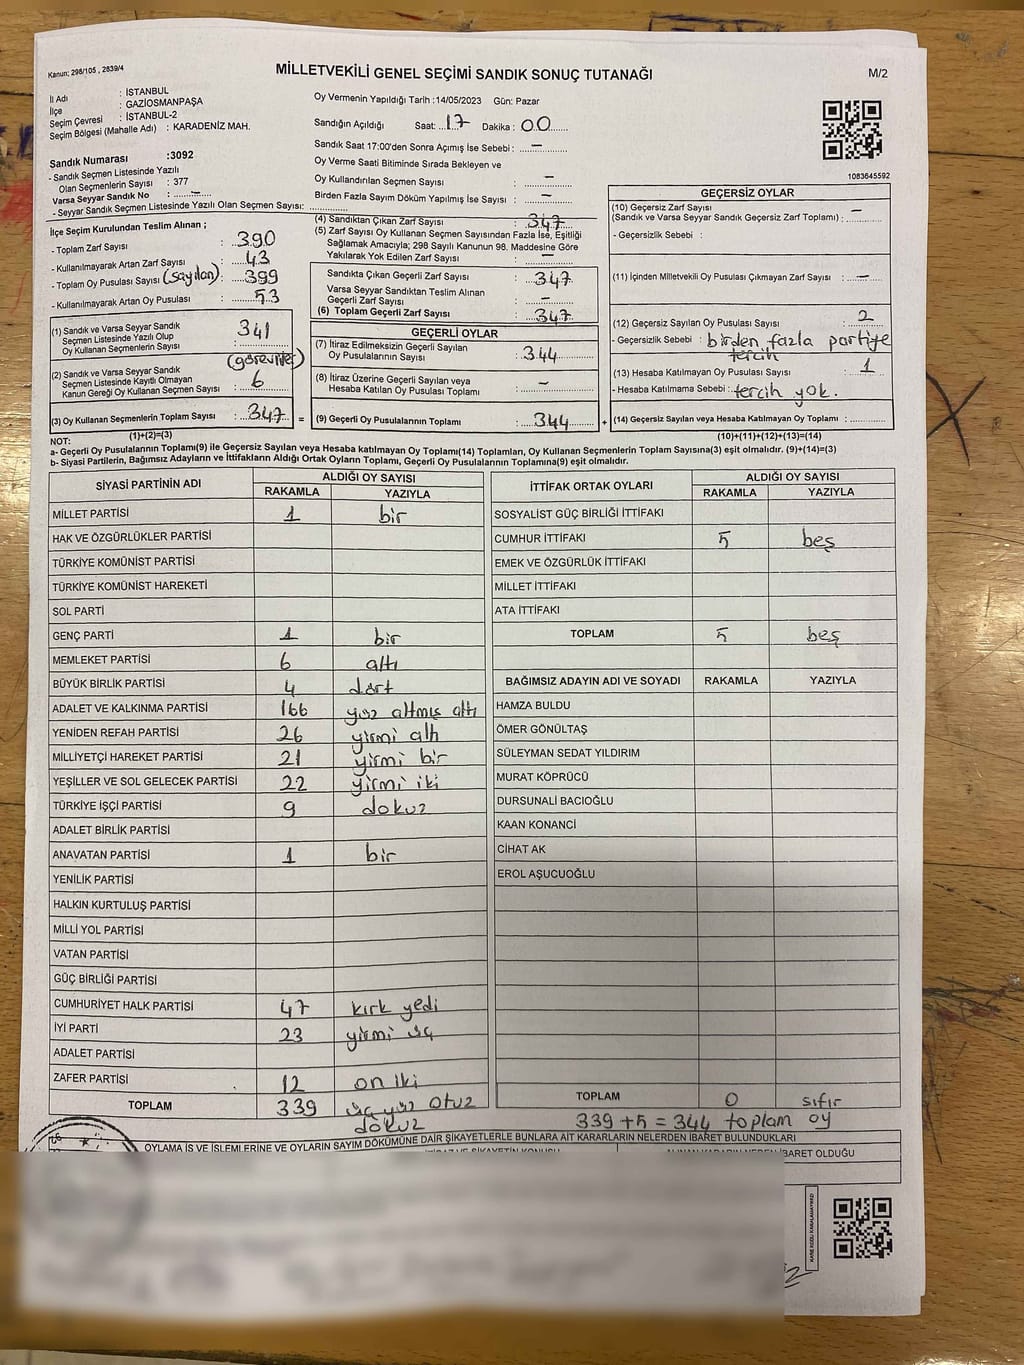 Kanun; 298/105 , 2839/4
MİLLETVEKİLİ GENEL SEÇİMİ SANDIK SONUÇ TUTANAĞI
M/2
İl Adı : İSTANBUL
İlçe : GAZİOSMANPAŞA
Seçim Çevresi : İSTANBUL-2
Seçim Bölgesi (Mahalle Adı) : KARADENİZ MAH.
Sandık Numarası :3092
- Sandık Seçmen Listesinde Yazılı
Olan Seçmenlerin Sayısı : 377
Varsa Seyyar Sandık No : ...........–........
- Seyyar Sandık Seçmen Listesinde Yazılı Olan Seçmen Sayısı: .............
Oy Vermenin Yapıldığı Tarih :14/05/2023 Gün: Pazar
Sandığın Açıldığı Saat: 17 Dakika : 00
Sandık Saat 17:00'den Sonra Açımış İse Sebebi : –
Oy Verme Saati Bitiminde Sırada Bekleyen ve
Oy Kullandırılan Seçmen Sayısı : –
Birden Fazla Sayım Döküm Yapılmış İse Sayısı : –
1083645592
İlçe Seçim Kurulundan Teslim Alınan ;
- Toplam Zarf Sayısı : 390
- Kullanılmayarak Artan Zarf Sayısı : 43
- Toplam Oy Pusulası Sayısı (sayılan) : 399
- Kullanılmayarak Artan Oy Pusulası : 53
(1) Sandık ve Varsa Seyyar Sandık
Seçmen Listesinde Yazılı Olup
Oy Kullanan Seçmenlerin Sayısı : 341
(2) Sandık ve Varsa Seyyar Sandık (görevliler)
Seçmen Listesinde Kayıtlı Olmayan
Kanun Gereği Oy Kullanan Seçmen Sayısı : 6
(3) Oy Kullanan Seçmenlerin Toplam Sayısı : 347 =
(1)+(2)=(3)
(4) Sandıktan Çıkan Zarf Sayısı : 347
(5) Zarf Sayısı Oy Kullanan Seçmen Sayısından Fazla İse, Eşitliği
Sağlamak Amacıyla; 298 Sayılı Kanunun 98. Maddesine Göre
Yakılarak Yok Edilen Zarf Sayısı : –
Sandıkta Çıkan Geçerli Zarf Sayısı : 347
Varsa Seyyar Sandıktan Teslim Alınan
Geçerli Zarf Sayısı : –
(6) Toplam Geçerli Zarf Sayısı : 347
GEÇERLİ OYLAR
(7) İtiraz Edilmeksizin Geçerli Sayılan
Oy Pusulalarının Sayısı : 344
(8) İtiraz Üzerine Geçerli Sayılan veya
Hesaba Katılan Oy Pusulası Toplamı : –
(9) Geçerli Oy Pusulalarının Toplamı : 344 +
GEÇERSİZ OYLAR
(10) Geçersiz Zarf Sayısı
(Sandık ve Varsa Seyyar Sandık Geçersiz Zarf Toplamı) : –
- Geçersizlik Sebebi :
(11) İçinden Milletvekili Oy Pusulası Çıkmayan Zarf Sayısı : –
(12) Geçersiz Sayılan Oy Pusulası Sayısı : 2
- Geçersizlik Sebebi : birden fazla partiye
tercih
(13) Hesaba Katılmayan Oy Pusulası Sayısı : 1
- Hesaba Katılmama Sebebi : tercih yok.
(14) Geçersiz Sayılan veya Hesaba Katılmayan Oy Toplamı : ............
(10)+(11)+(12)+(13)=(14)
NOT:
a- Geçerli Oy Pusulalarının Toplamı(9) ile Geçersiz Sayılan veya Hesaba katılmayan Oy Toplamı(14) Toplamları, Oy Kullanan Seçmenlerin Toplam Sayısına(3) eşit olmalıdır. (9)+(14)=(3)
b- Siyasi Partilerin, Bağımsız Adayların ve İttifakların Aldığı Ortak Oyların Toplamı, Geçerli Oy Pusulalarının Toplamına(9) eşit olmalıdır.
SİYASİ PARTİNİN ADI ALDIĞI OY SAYISI
RAKAMLA YAZIYLA
MİLLET PARTİSİ 1 bir
HAK VE ÖZGÜRLÜKLER PARTİSİ
TÜRKİYE KOMÜNİST PARTİSİ
TÜRKİYE KOMÜNİST HAREKETİ
SOL PARTİ
GENÇ PARTİ 1 bir
MEMLEKET PARTİSİ 6 altı
BÜYÜK BİRLİK PARTİSİ 4 dört
ADALET VE KALKINMA PARTİSİ 166 yüz altmış altı
YENİDEN REFAH PARTİSİ 26 yirmi altı
MİLLİYETÇİ HAREKET PARTİSİ 21 yirmi bir
YEŞİLLER VE SOL GELECEK PARTİSİ 22 yirmi iki
TÜRKİYE İŞÇİ PARTİSİ 9 dokuz
ADALET BİRLİK PARTİSİ
ANAVATAN PARTİSİ 1 bir
YENİLİK PARTİSİ
HALKIN KURTULUŞ PARTİSİ
MİLLİ YOL PARTİSİ
VATAN PARTİSİ
GÜÇ BİRLİĞİ PARTİSİ
CUMHURİYET HALK PARTİSİ 47 kırk yedi
İYİ PARTİ 23 yirmi üç
ADALET PARTİSİ
ZAFER PARTİSİ 12 on iki
TOPLAM 339 üç yüz otuz
dokuz
İTTİFAK ORTAK OYLARI ALDIĞI OY SAYISI
RAKAMLA YAZIYLA
SOSYALİST GÜÇ BİRLİĞİ İTTİFAKI
CUMHUR İTTİFAKI 5 beş
EMEK VE ÖZGÜRLÜK İTTİFAKI
MİLLET İTTİFAKI
ATA İTTİFAKI
TOPLAM 5 beş
BAĞIMSIZ ADAYIN ADI VE SOYADI RAKAMLA YAZIYLA
HAMZA BULDU
ÖMER GÖNÜLTAŞ
SÜLEYMAN SEDAT YILDIRIM
MURAT KÖPRÜCÜ
DURSUNALİ BACIOĞLU
KAAN KONANCİ
CİHAT AK
EROL AŞUCUOĞLU
TOPLAM 0 sıfır
339 + 5 = 344 toplam oy
OYLAMA İŞ VE İŞLEMLERİNE VE OYLARIN SAYIM DÖKÜMÜNE DAİR ŞİKAYETLERLE BUNLARA AİT KARARLARIN NELERDEN İBARET BULUNDUKLARI
İBARET OLDUĞU